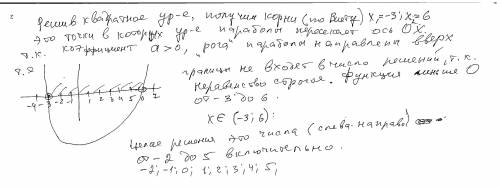 Решив квадратное ур-е, получим корни (по Виету) x₁=-3; x₂=6
это точки в которых ур-е параболы пересекает ось OX,
т.к. коэффициент a>0, "рога" параболы направлены вверх
т.е
границы не входят в число решений, т.к.
неравенство строгое. Функция меньше 0
от -3 до 6.
x∈(-3;6):
-4 -3 -2 -1 2
Целые решения это числа (слева-направо)
от -2 до 5 включительно.
-2; -1; 0; 1; 2; 3; 4; 5;